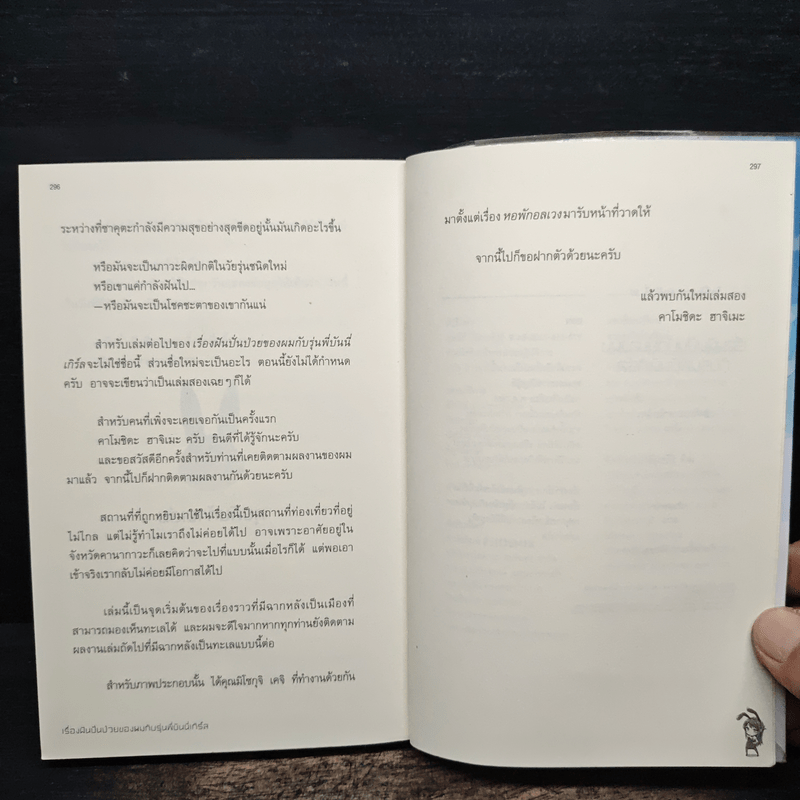 296
ระหว่างที่ซาคุตะกำลังมีความสุขอย่างสุดขีดอยู่นั้นมันเกิดอะไรขึ้น
หรือมันจะเป็นภาวะผิดปกติในวัยรุ่นชนิดใหม่
หรือเขาแค่กำลังฝันไป...
—หรือมันจะเป็นโชคชะตาของเขากันแน่
สำหรับเล่มต่อไปของ เรื่องฝันปั่นป่วยของผมกับรุ่นพี่บันนี่
เกิร์ล จะไม่ใช่ชื่อนี้ ส่วนชื่อใหม่จะเป็นอะไร ตอนนี้ยังไม่ได้กำหนด
ครับ อาจจะเขียนว่าเป็นเล่มสองเฉย ๆ ก็ได้
สำหรับคนที่เพิ่งจะเคยเจอกันเป็นครั้งแรก
คาโมชิดะ ฮาจิเมะ ครับ ยินดีที่ได้รู้จักนะครับ
และขอสวัสดีอีกครั้งสำหรับท่านที่เคยติดตามผลงานของผม
มาแล้ว จากนี้ไปก็ฝากติดตามผลงานกันด้วยนะครับ
สถานที่ที่ถูกหยิบมาใช้ในเรื่องนี้เป็นสถานที่ท่องเที่ยวที่อยู่
ไม่ไกล แต่ไม่รู้ทำไมเราถึงไม่ค่อยได้ไป อาจเพราะอาศัยอยู่ใน
จังหวัดคานากาวะก็เลยคิดว่าจะไปที่แบบนั้นเมื่อไรก็ได้ แต่พอเอา
เข้าจริงเรากลับไม่ค่อยมีโอกาสได้ไป
เล่มนี้เป็นจุดเริ่มต้นของเรื่องราวที่มีฉากหลังเป็นเมืองที่
สามารถมองเห็นทะเลได้ และผมจะดีใจมากหากทุกท่านยังติดตาม
ผลงานเล่มถัดไปที่มีฉากหลังเป็นทะเลแบบนี้ต่อ
สำหรับภาพประกอบนั้น ได้คุณมิโซกุจิ เคจิ ที่ทำงานด้วยกัน
เรื่องฝันปั่นป่วยของผมกับรุ่นพี่บันนี่เกิร์ล
297
มาตั้งแต่เรื่อง หอพักอลเวง มารับหน้าที่วาดให้
จากนี้ไปก็ขอฝากตัวด้วยนะครับ
แล้วพบกันใหม่เล่มสอง
คาโมชิดะ ฮาจิเมะ